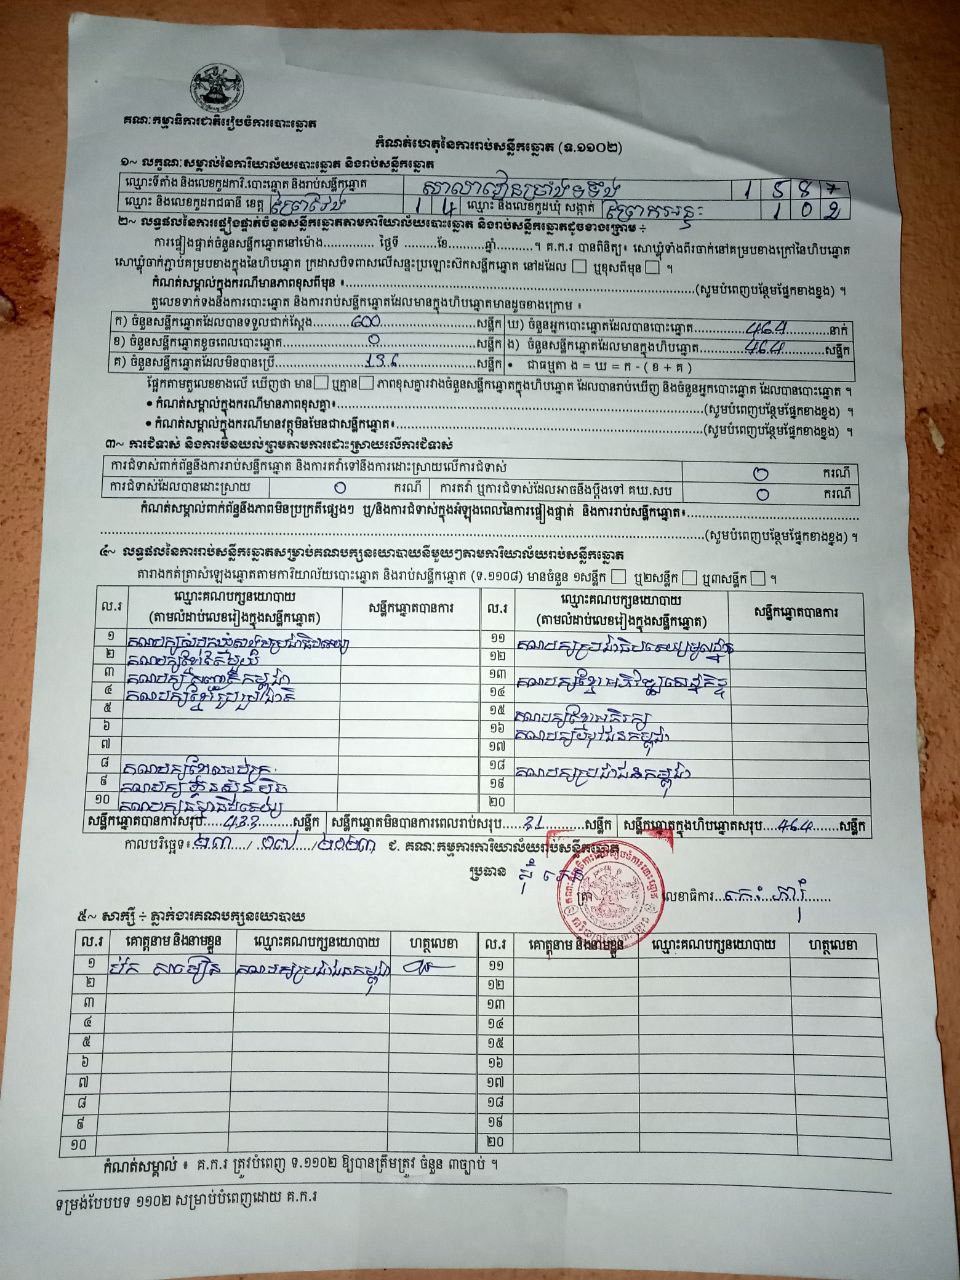 គណៈកម្មាធិការជាតិរៀបចំការបោះឆ្នោត
កំណត់ហេតុនៃការរាប់សន្លឹកឆ្នោត (ទ.១១០២)
១~ លក្ខណៈសម្គាល់នៃការិយាល័យបោះឆ្នោត និងរាប់សន្លឹកឆ្នោត
ឈ្មោះទីតាំង និងលេខកូដការិ.បោះឆ្នោត និងរាប់សន្លឹកឆ្នោត សាលារៀន 1587
ឈ្មោះ និងលេខកូដរាជធានី ខេត្ត ព្រៃវែង 14 ឈ្មោះ និងលេខកូដឃុំ សង្កាត់ 102
២~ លទ្ធផលនៃការផ្ទៀងផ្ទាត់ចំនួនសន្លឹកឆ្នោតតាមការិយាល័យបោះឆ្នោត និងរាប់សន្លឹកឆ្នោតដូចខាងក្រោម ÷
ការផ្ទៀងផ្ទាត់ចំនួនសន្លឹកឆ្នោតនៅម៉ោង.............. ថ្ងៃទី .........ខែ..........ឆ្នាំ..........។ គ.ក.រ បានពិនិត្យ៖ សោឃ្លុំទាំងពីរចាក់នៅគម្របខាងក្រៅនៃហិបឆ្នោត
សោឃ្លុំចាក់ភ្ជាប់គម្របខាងក្នុងនៃហិបឆ្នោត ក្រដាសបិទពាសលើសន្ទះប្រឡោះសិកសន្លឹកឆ្នោត នៅដដែល ឬខុសពីមុន ។
កំណត់សម្គាល់ក្នុងករណីមានភាពខុសពីមុន ៖..............................(សូមបំពេញបន្ថែមផ្នែកខាងខ្នង) ។
តួលេខទាក់ទងនឹងការបោះឆ្នោត និងការរាប់សន្លឹកឆ្នោតដែលមានក្នុងហិបឆ្នោតមានដូចខាងក្រោម ៖
ក) ចំនួនសន្លឹកឆ្នោតដែលបានទទួលជាក់ស្តែង..........600..........សន្លឹក ឃ) ចំនួនអ្នកបោះឆ្នោតដែលបានបោះឆ្នោត..........464..........នាក់
ខ) ចំនួនសន្លឹកឆ្នោតខូចពេលបោះឆ្នោត..........0..........សន្លឹក ង) ចំនួនសន្លឹកឆ្នោតដែលមាននៅក្នុងហិបឆ្នោត..........464..........សន្លឹក
គ) ចំនួនសន្លឹកឆ្នោតដែលមិនបានប្រើ..........136..........សន្លឹក • ជាធម្មតា ង = ឃ = ក - ( ខ + គ )
ផ្អែកតាមតួលេខខាងលើ ឃើញថា មាន ឬគ្មាន ភាពខុសគ្នារវាងចំនួនសន្លឹកឆ្នោតក្នុងហិបឆ្នោត ដែលបានរាប់ឃើញ និងចំនួនអ្នកបោះឆ្នោត ដែលបានបោះឆ្នោត ។
• កំណត់សម្គាល់ក្នុងករណីមានភាពខុសគ្នា៖..............................(សូមបំពេញបន្ថែមផ្នែកខាងខ្នង) ។
• កំណត់សម្គាល់ក្នុងករណីមានវត្ថុមិនមែនជាសន្លឹកឆ្នោត៖..............................(សូមបំពេញបន្ថែមផ្នែកខាងខ្នង) ។
៣~ ការជំទាស់ និងការមិនយល់ព្រមតាមការដោះស្រាយលើការជំទាស់
ការជំទាស់ពាក់ព័ន្ធនឹងការរាប់សន្លឹកឆ្នោត និងការតវ៉ាទៅនឹងការដោះស្រាយលើការជំទាស់ 0 ករណី
ការជំទាស់ដែលបានដោះស្រាយ 0 ករណី ការតវ៉ា ឬការជំទាស់ដែលអាចនឹងប្តឹងទៅ គឃ.សប 0 ករណី
កំណត់សម្គាល់ពាក់ព័ន្ធនឹងភាពមិនប្រក្រតីផ្សេងៗ ឬ/និងការជំទាស់ក្នុងអំឡុងពេលនៃការផ្ទៀងផ្ទាត់ និងការរាប់សន្លឹកឆ្នោត៖..............................
..............................(សូមបំពេញបន្ថែមផ្នែកខាងខ្នង) ។
៤~ លទ្ធផលនៃការរាប់សន្លឹកឆ្នោតសម្រាប់គណបក្សនយោបាយនីមួយៗតាមការិយាល័យរាប់សន្លឹកឆ្នោត
តារាងកត់ត្រាសំឡេងឆ្នោតតាមការិយាល័យបោះឆ្នោត និងរាប់សន្លឹកឆ្នោត (ទ.១១០៨) មានចំនួន ១សន្លឹក ឬ២សន្លឹក ឬ៣សន្លឹក ។
ល.រ ឈ្មោះគណបក្សនយោបាយ (តាមលំដាប់លេខរៀងក្នុងសន្លឹកឆ្នោត) សន្លឹកឆ្នោតបានការ ល.រ ឈ្មោះគណបក្សនយោបាយ (តាមលំដាប់លេខរៀងក្នុងសន្លឹកឆ្នោត) សន្លឹកឆ្នោតបានការ
១ ១១
២ គណបក្សខ្មែរតែមួយ ១២
៣ គណបក្ស កម្ពុជា ១៣ គណបក្សខ្មែរអភិវឌ្ឍសេដ្ឋកិច្ច
៤ គណបក្សខ្មែររួបរួមជាតិ ១៤
៥ ១៥ គណបក្សខ្មែរអភិរក្ស
៦ ១៦
៧ ១៧
៨ ១៨ គណបក្សប្រជាជនកម្ពុជា
៩ គណបក្សហ៊្វុនស៊ិនប៉ិច ១៩
១០ ២០
សន្លឹកឆ្នោតបានការសរុប......433......សន្លឹក សន្លឹកឆ្នោតមិនបានការពេលរាប់សរុប......31......សន្លឹក សន្លឹកឆ្នោតក្នុងហិបឆ្នោតសរុប......464......សន្លឹក
កាលបរិច្ឆេទ៖ ២៣/០៧/២០២៣ ជ. គណៈកម្មការការិយាល័យរាប់សន្លឹកឆ្នោត
ប្រធាន ត្រា លេខាធិការ
៥~ សាក្សី ÷ ភ្នាក់ងារគណបក្សនយោបាយ
ល.រ គោត្តនាម និងនាមខ្លួន ឈ្មោះគណបក្សនយោបាយ ហត្ថលេខា ល.រ គោត្តនាម និងនាមខ្លួន ឈ្មោះគណបក្សនយោបាយ ហត្ថលេខា
១ គណបក្សប្រជាជនកម្ពុជា ១១
២ ១២
៣ ១៣
៤ ១៤
៥ ១៥
៦ ១៦
៧ ១៧
៨ ១៨
៩ ១៩
១០ ២០
កំណត់សម្គាល់ ៖ គ.ក.រ ត្រូវបំពេញ ទ.១១០២ ឱ្យបានត្រឹមត្រូវ ចំនួន ៣ច្បាប់ ។
ទម្រង់បែបបទ ១១០២ សម្រាប់បំពេញដោយ គ.ក.រ